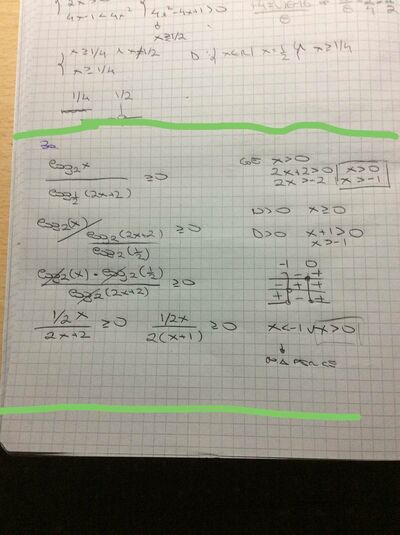 2x>0
4x-1<4x²
4x²-4x+1>0
x≥1/2
x≥1/4 ∧ x≠1/2
x≥1/4
D: {x∈R | x=1/2 ∨ x≥1/4
1/4 1/2
log₂x / log_{1/2}(2x+2) ≥0
log₂(x) / (log₂(2x+2) / log₂(1/2)) ≥0
log₂(x) · log₂(1/2) / log₂(2x+2) ≥0
1/2 x / 2x+2 ≥0 1/2x / 2(x+1) ≥0
x>0
2x+2>0 x>0
2x>-2 x>-1
N>0 x≥0
D>0 x+1>0
x>-1
-1 0
- - +
- + +
+ - +
x<-1 ∨ x>0